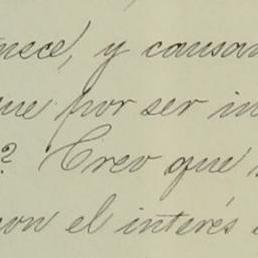 nece, y causan
que por ser in
? Creo que
con el interés